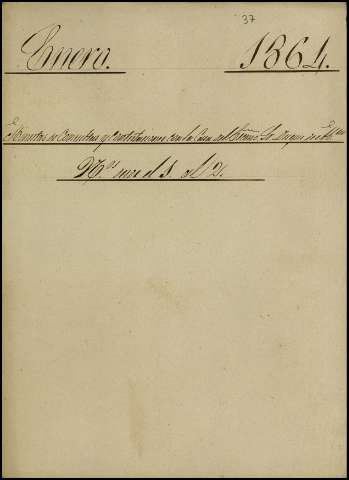 37
Enero. 1864.
Minutas de Consultas y Contestaciones con la Casa del Excmo. Sr. Duque de
N.os uno el 1. al 2.